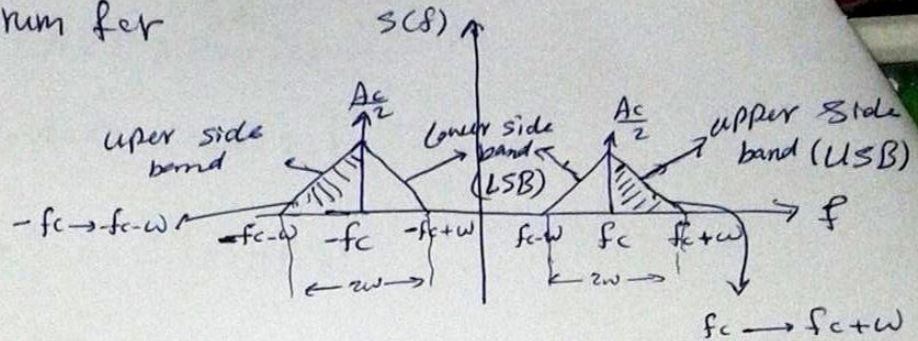 rum for
S(f)
Ac/2
Ac/2
uper side
band
Lower side
band
(LSB)
upper side
band (USB)
-fc→-fc-w
f
-fc-w
-fc
-fc+w
fc-w
fc
fc+w
2w
2w
fc → fc+w